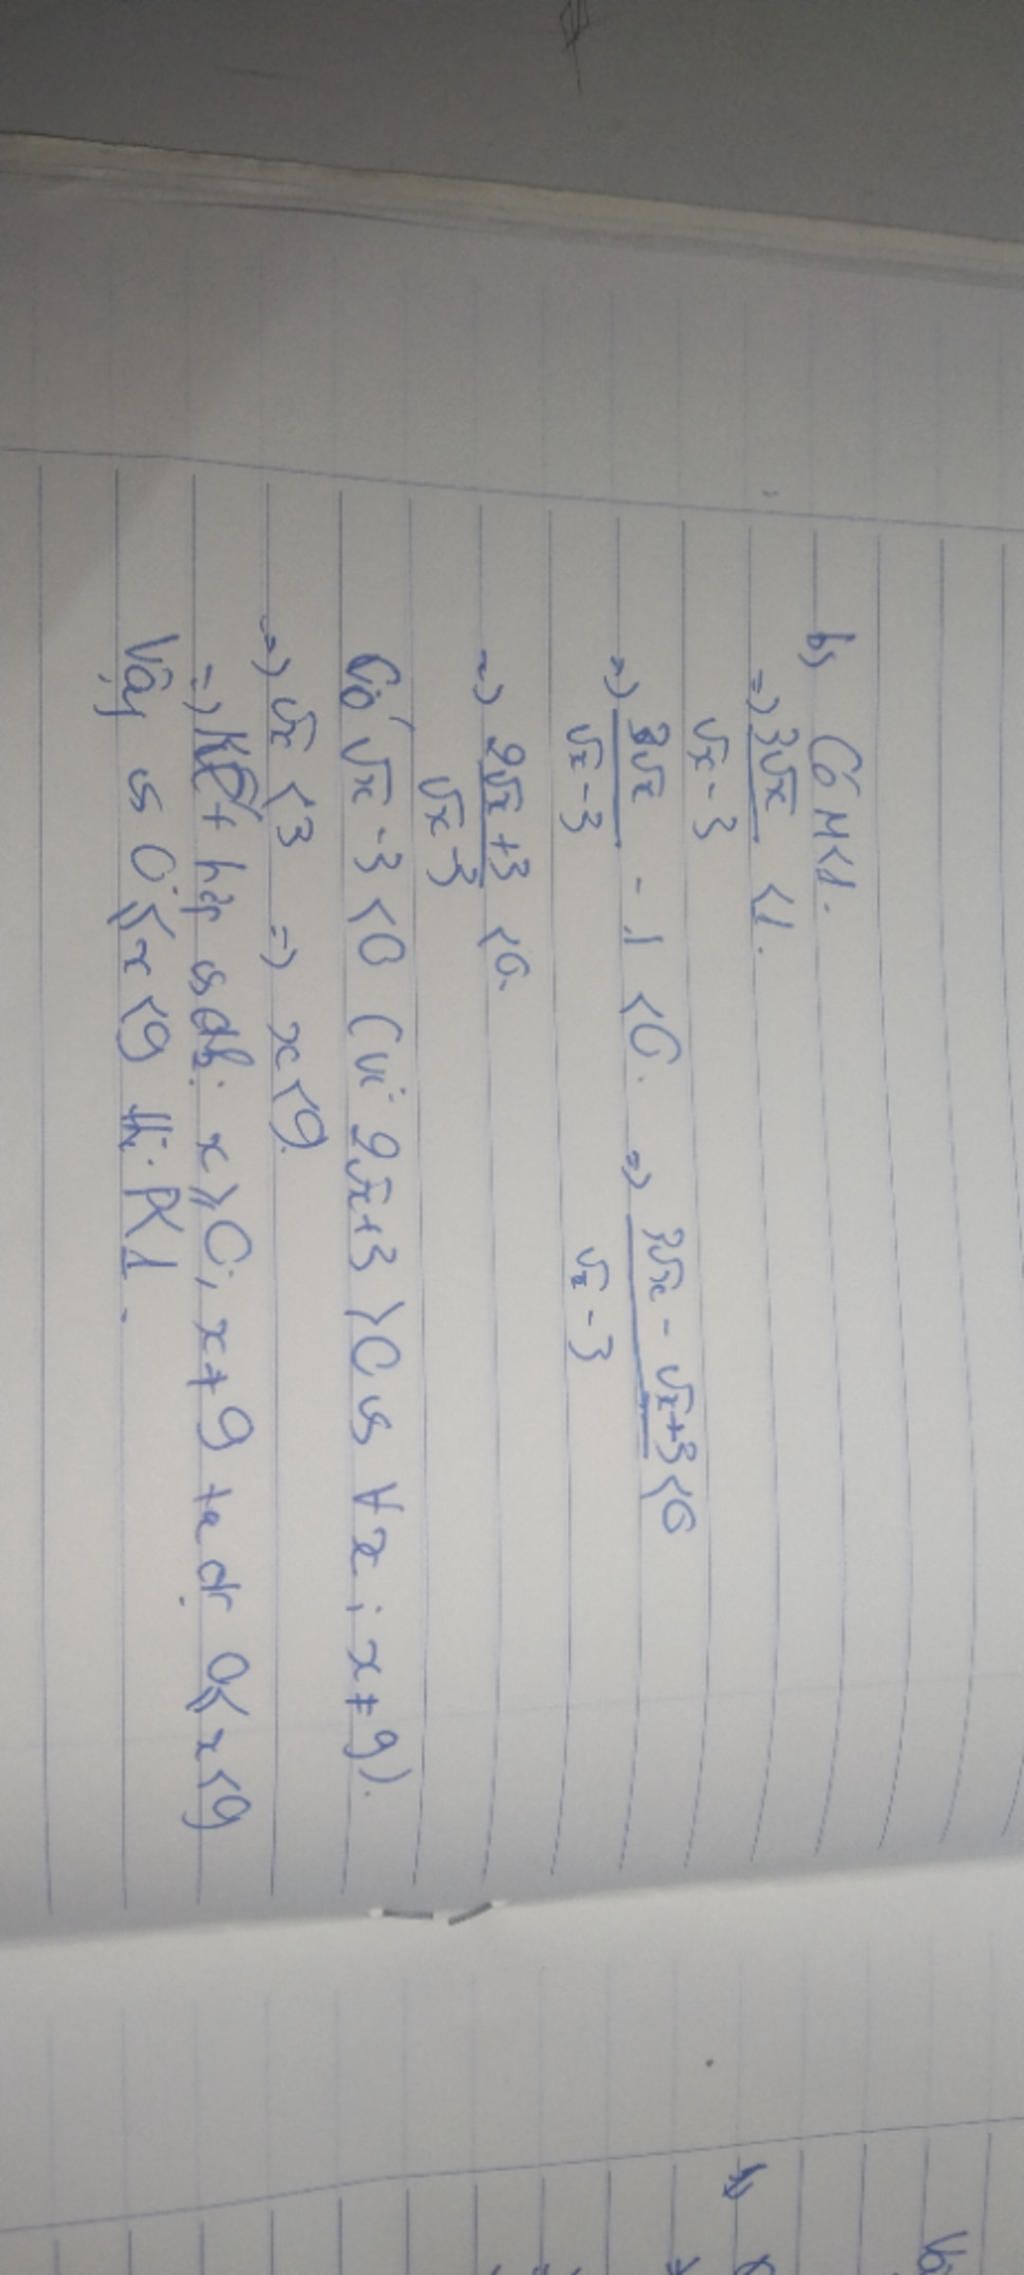 b, Có M<1.
=> 3√x / √x-3 < 1.
=> 3√x / √x-3 - 1 < 0. => 3√x - √x+3 / √x-3 < 0
=> 2√x+3 / √x-3 < 0.
Có √x-3 < 0 (vì 2√x+3 > 0 vs ∀x; x≠9).
=> √x < 3 => x < 9.
=> Kết hợp vs đk: x ⩾ 0; x≠9 ta dc 0⩽x<9
Vậy vs 0⩽x<9 thì P<1.
b
Vậ